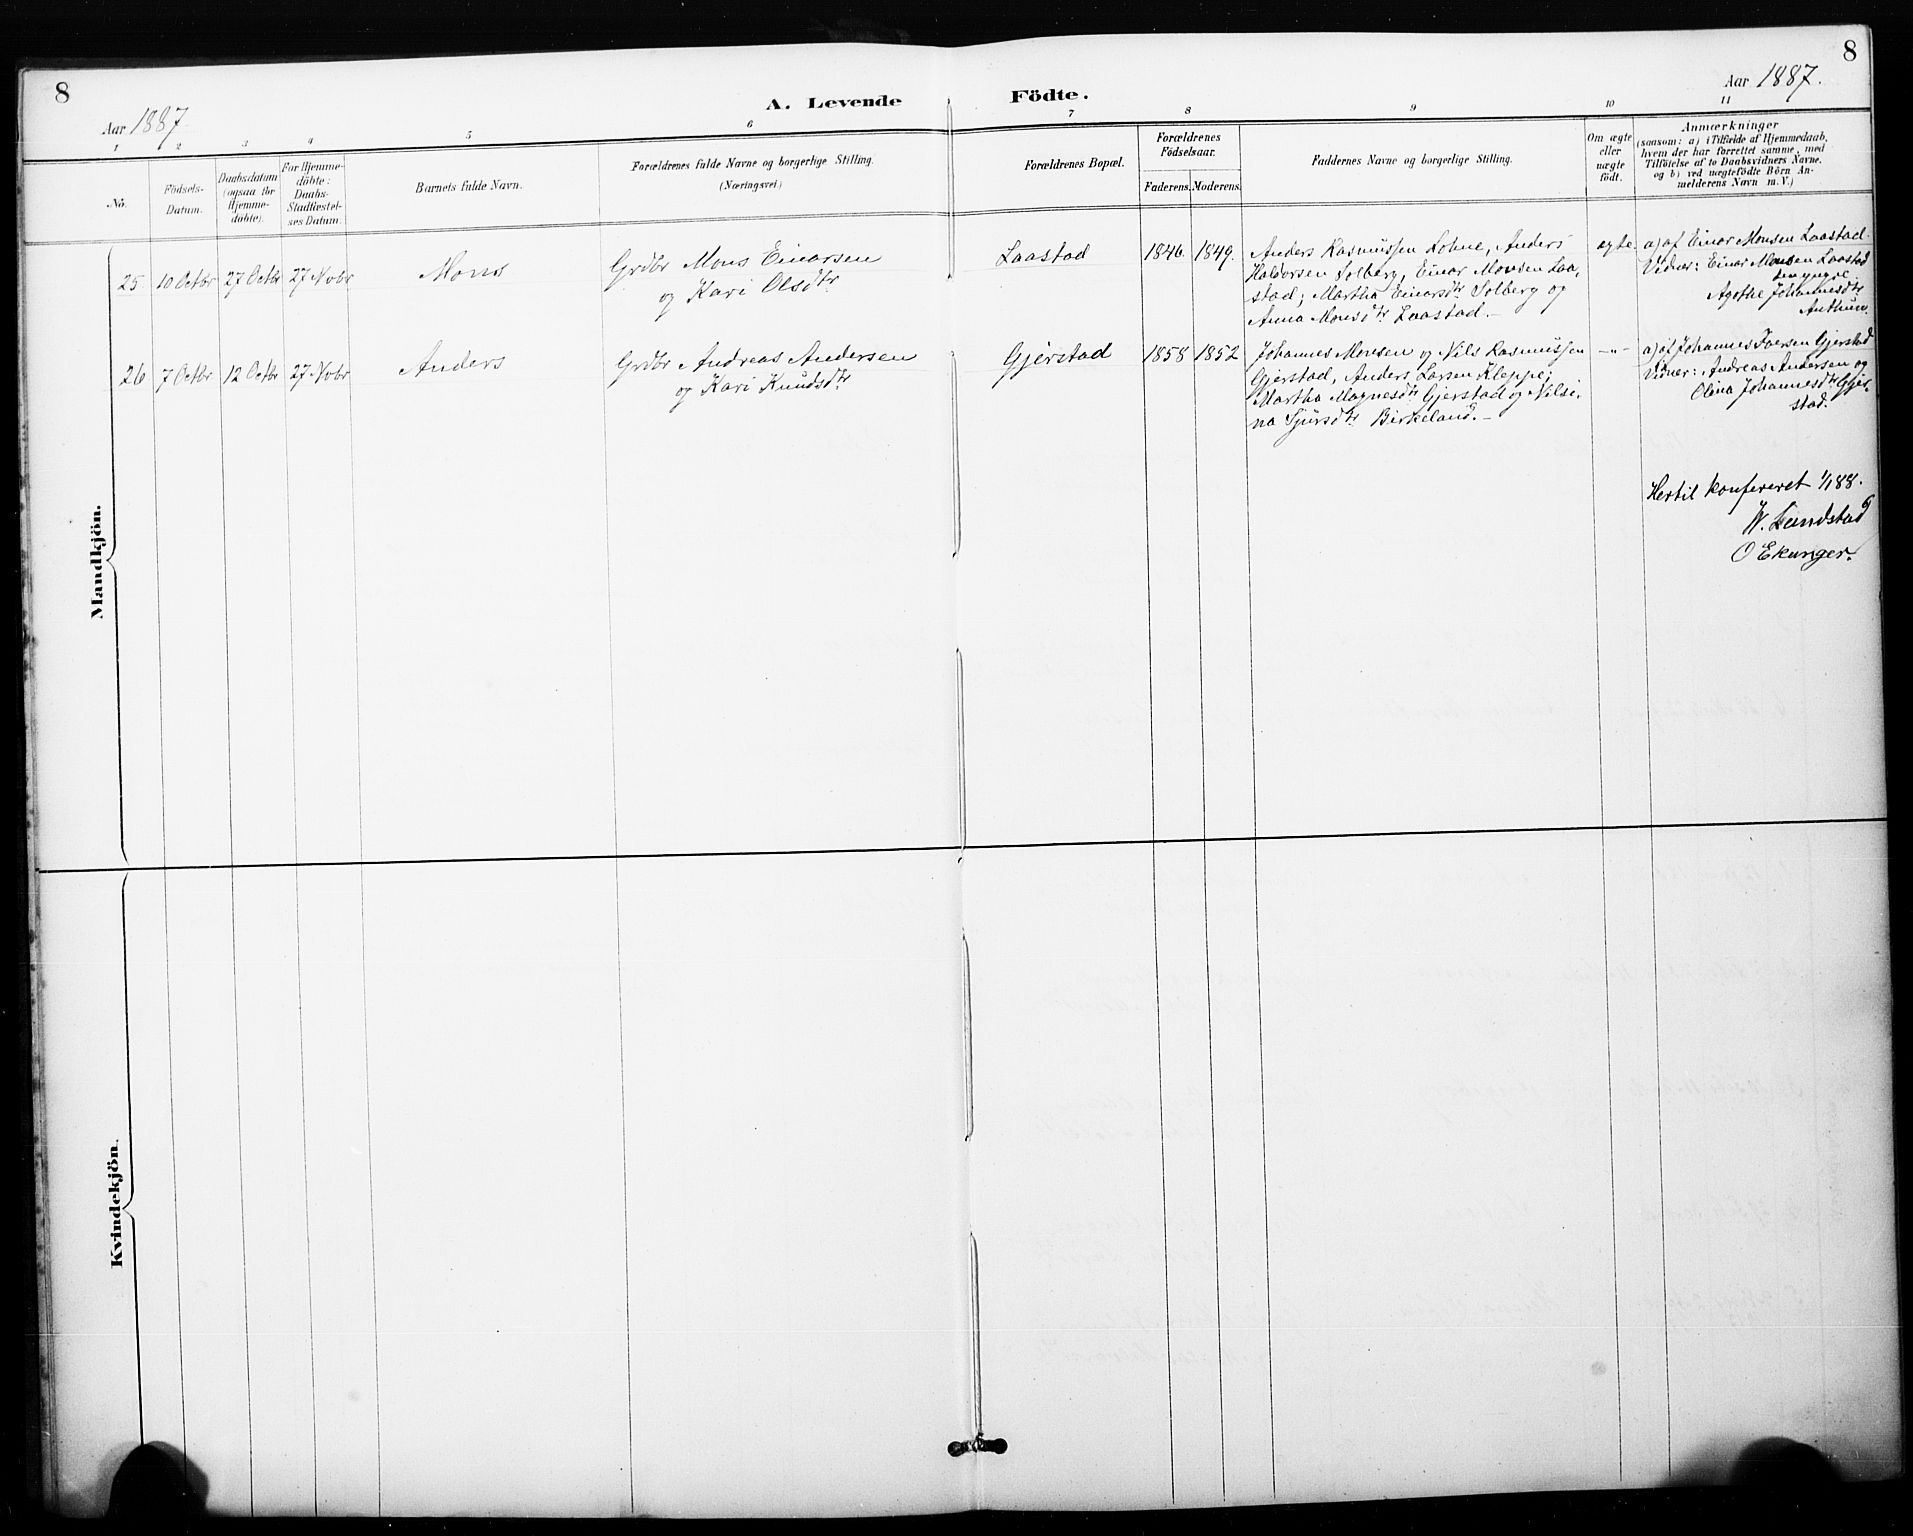 8
8
Aar 1887.
A. Levende Födte.
Aar 1887.
1 2 3 4 5 6 7 8 9 10 11
No.
Födsels-
Datum.
Daabsdatum
(ogsaa for
Hjemme-
döbte).
For Hjemme-
döbte:
Daabs-
Stadfæstel-
ses Datum.
Barnets fulde Navn.
Forældrenes fulde Navne og borgerlige Stilling.
(Næringsvei)
Forældrenes Bopæl.
Forældrenes
Födselsaar.
Faderens. Moderens.
Faddernes Navne og borgerlige Stilling.
Om ægte
eller
uægte
födt.
Anmærkninger
(saasom: a) i Tilfælde af Hjemmedaab,
hvem der har forrettet samme, med
Tilföielse af to Daabsvidners Navne,
og b) ved uægtefödte Börn An-
melderens Navn m. V.)
Mandkjön.
25 10 Octbr 27 Octbr 27 Novbr Mons
Grdbr Mons Einarsen
og Kari Olsdtr
Laastad 1846. 1849.
Anders Rasmussen Lohne, Anders
Haldorsen Solberg, Einar Monsen Laa-
stad; Martha Einarsdtr Solberg og
Anna Monsdtr Laastad. –
ægte
a) af Einar Monsen Laastad.
Vidner: Einar Monsen Laastad
den yngre.
Agathe Johannesdtr
Authun.
26 7 Octbr 12 Octbr 27 Novbr Anders
Grdbr Andreas Andersen
og Kari Knudsdtr
Gjerstad 1858 1852
Johannes Monsen og Nils Rasmussen
Gjerstad, Anders Larsen Kleppe;
Martha Magnesdtr Gjerstad og Nilsi-
na Sjursdtr Birkeland. –
–"–
a) af Johannes Iversen Gjerstad
Vidner: Andreas Andersen og
Olina Johannesdtr Gjer-
stad.
Hertil konfereret 1/1 88.
W. Landstad
O Ekanger.
Kvindekjön.